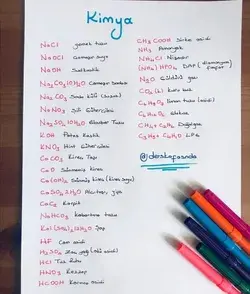 Kimya
NaCl yemek tuzu
NaOCl Çamaşır suyu
NaOH Sudkostik
Na2CO3(10)H2O Çamaşır Sodası
Na2CO3 Soda külü
NaNO3 Şili Güherçilesi
Na2SO4 10H2O Glauber Tuzu
KOH Potas Kostik
KNO3 Hint Güherçilesi
CaCO3 Kireç Taşı
CaO Sönmemiş kireç
Ca(OH)2 Sönmüş kireç (kireç suyu)
CaSO4 2H2O Alçıtaşı, jips
CaC2 Karpit
NaHCO3 kabartma tozu
KAl(SO4)2 12H2O Şap
HF Cam asidi
H2SO4 Zaç yağı (akü asidi)
HCl Tuz Ruhu
HNO3 Kezzap
HCOOH Karınca asidi
CH3COOH Sirke asidi
NH3 Amonyak
NH4Cl Nişadır
(NH4)2HPO4 DAP (diamonyum fosfat)
N2O Güldürücü gaz
CO2 (k) kuru buz
C6H8O7 limon tuzu (asidi)
C6H12O6 Glikoz
CH4+C2H6 Doğalgaz
C3H8+C4H10 LPG
@derskafasinda